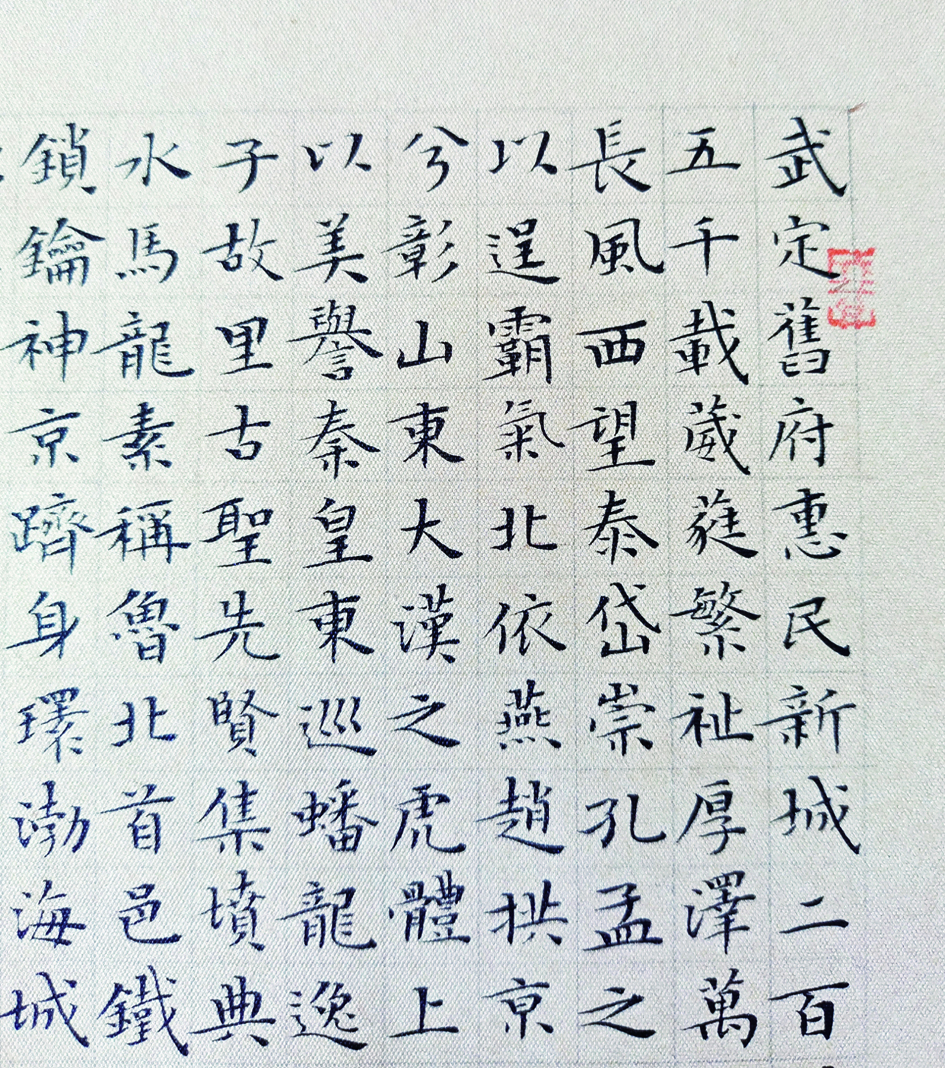 武定舊府惠民新城二百
五千載葳蕤繁祉厚澤萬
長風西望泰岱崇孔孟之
以逞霸氣北依燕趙拱京
兮彰山東大漢之虎體上
以美譽秦皇東巡蟠龍逸
子故里古聖先賢集墳典
水馬龍素稱魯北首邑鐵
鎖鑰神京躋身環渤海城